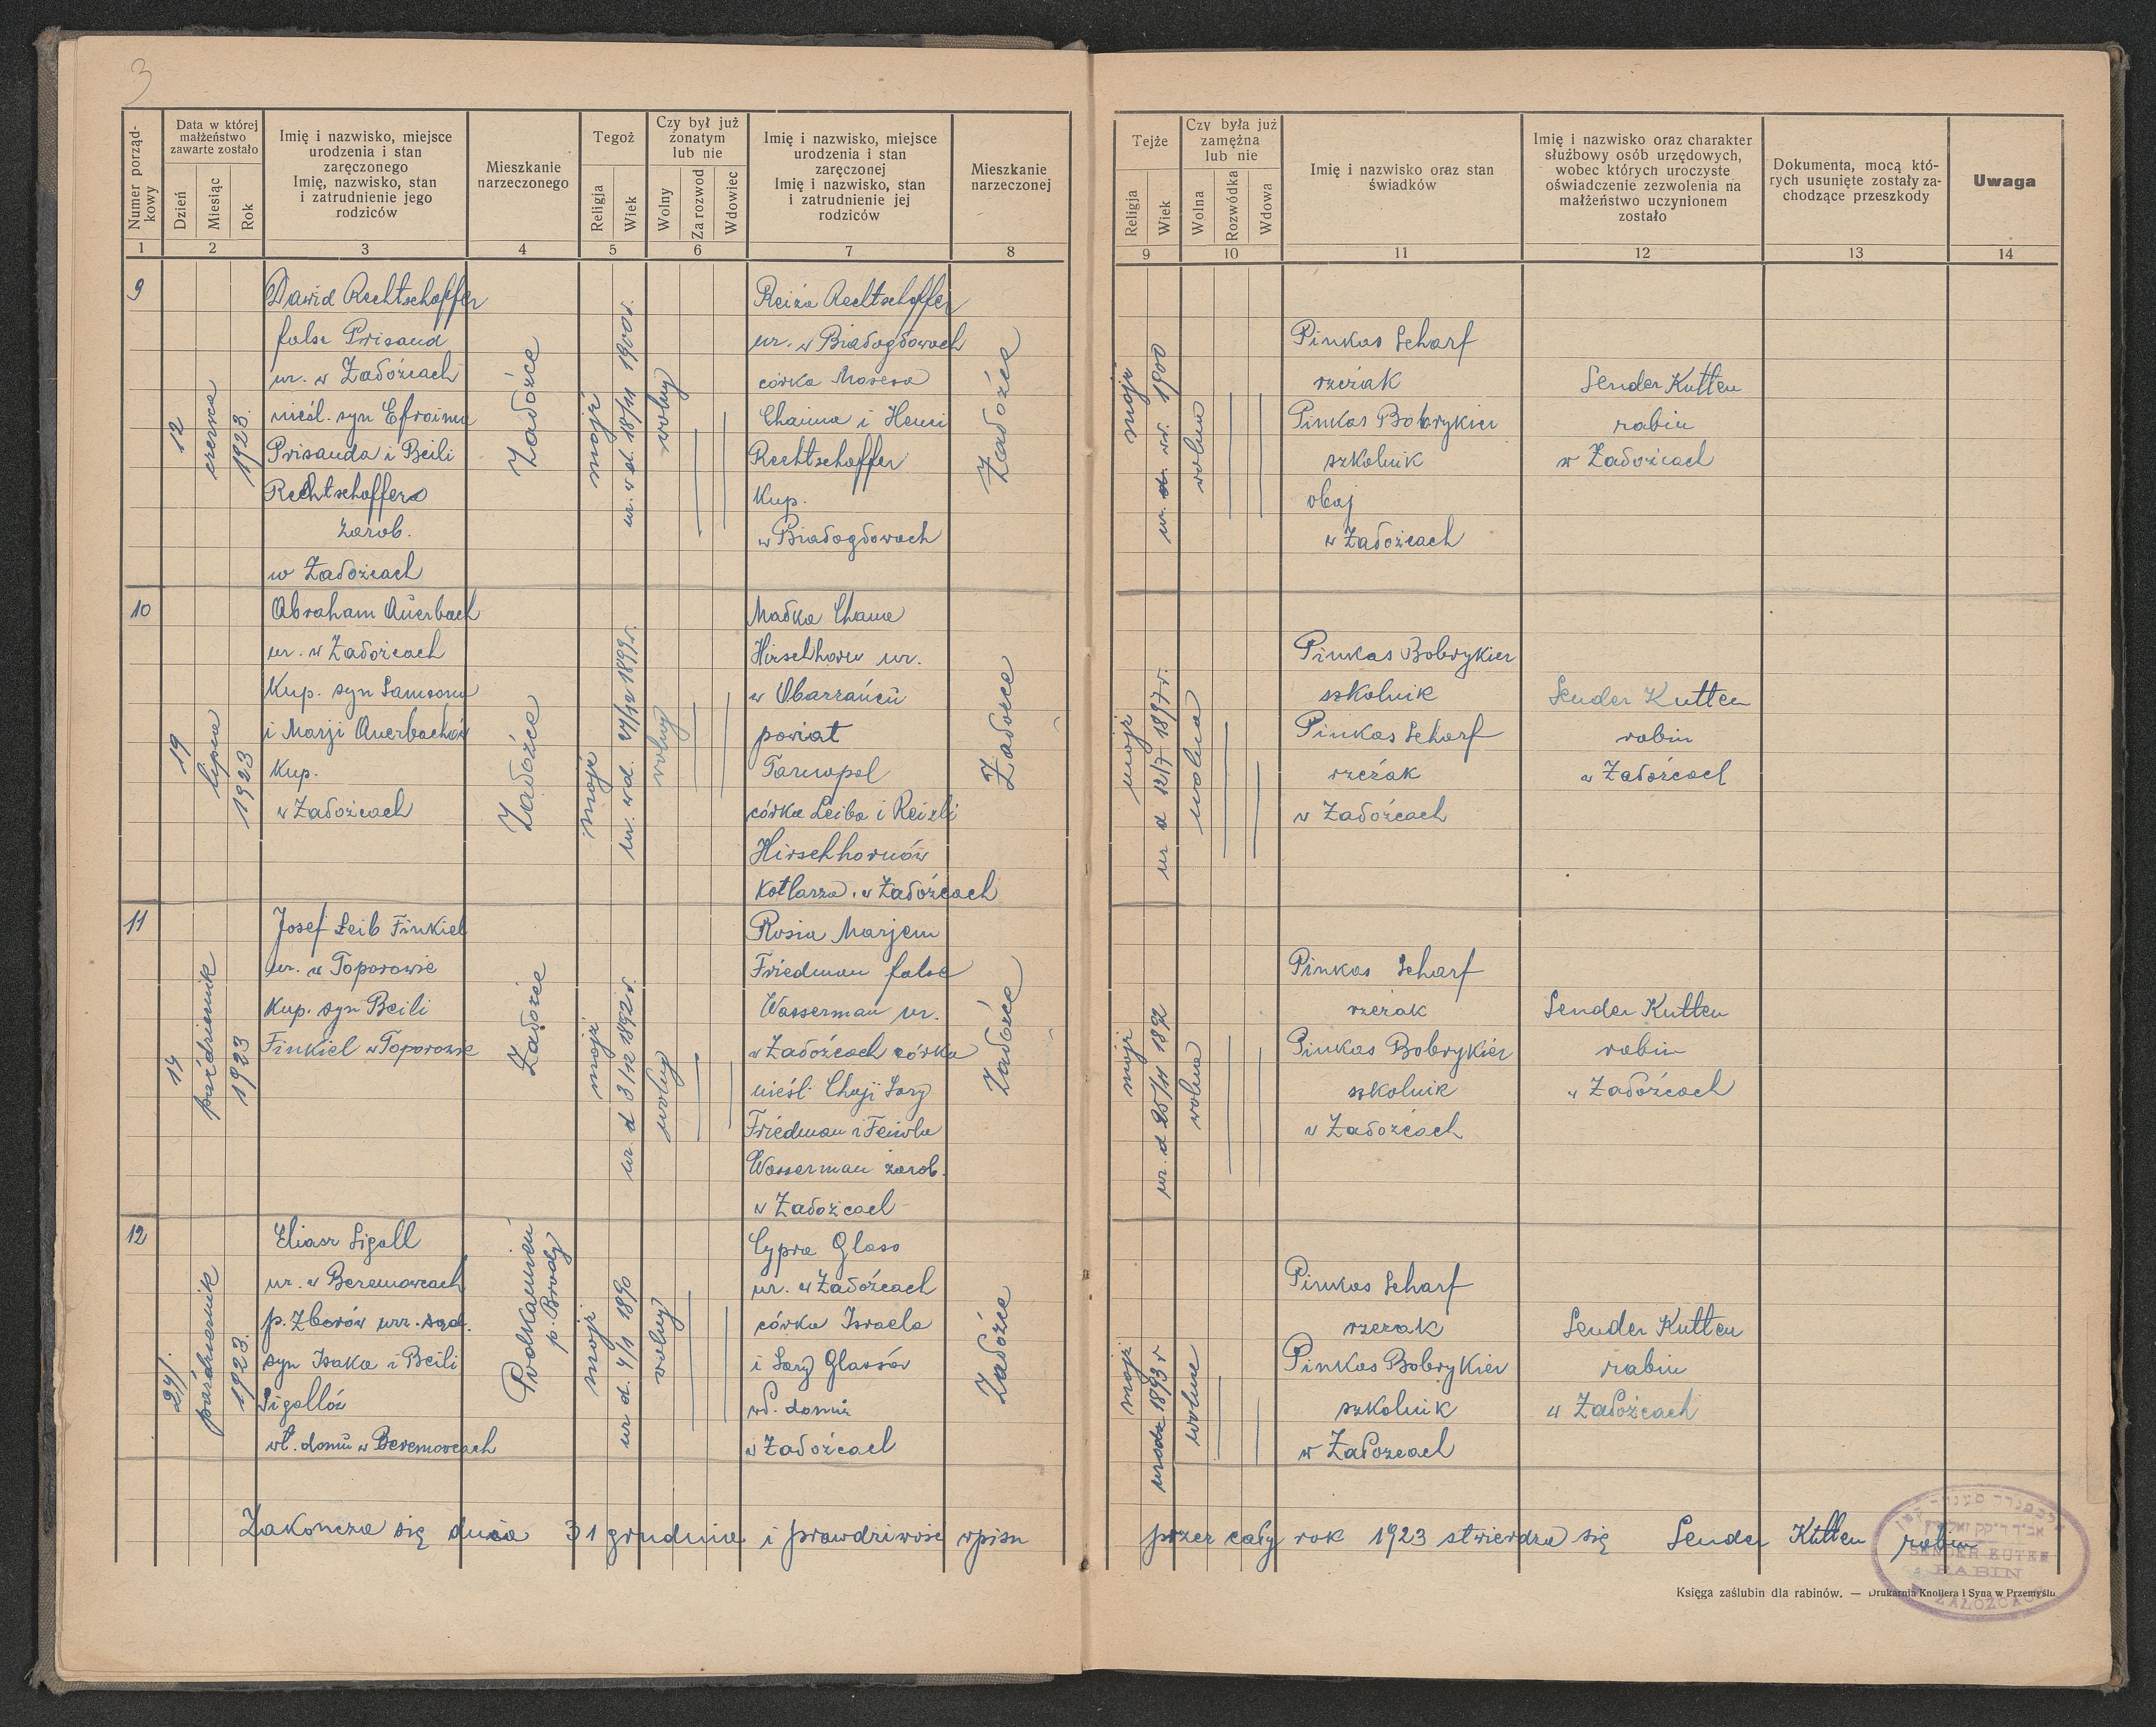 3
Numer porząd-
kowy
Data w której
małżeństwo
zawarte zostało
Dzień
Miesiąc
Rok
Imię i nazwisko, miejsce
urodzenia i stan
zaręczonego
Imię, nazwisko, stan
i zatrudnienie jego
rodziców
Mieszkanie
narzeczonego
Tegoż
Religja
Wiek
Czy był już
żonatym
lub nie
Wolny
Za rozwod
Wdowiec
Imię i nazwisko, miejsce
urodzenia i stan
zaręczonej
Imię i nazwisko, stan
i zatrudnienie jej
rodziców
Mieszkanie
narzeczonej
Tejże
Religja
Wiek
Czy była już
zamężna
lub nie
Wolna
Rozwódka
Wdowa
Imię i nazwisko oraz stan
świadków
Imię i nazwisko oraz charakter
służbowy osób urzędowych,
wobec których uroczyste
oświadczenie zezwolenia na
małżeństwo uczynionem
zostało
Dokumenta, mocą któ-
rych usunięte zostały za-
chodzące przeszkody
Uwaga
1 2 3 4 5 6 7 8 9 10 11 12 13 14
9
12
czerwca
1923.
Dawid Rechtschaffer
false Prisand
ur. w Załoźcach
nieśl. syn Efroima
Prisanda i Beili
Rechtschaffera
zarob.
w Załoźcach
Załoźce
mojż
ur. w d. 18/11 1900 r.
wolny
Reiza Rechtschaffer
ur. w Białogłowach
córka Mosesa
Chaima i Heni
Rechtschaffer
Kup.
w Białogłowach
Załoźce
mojż
ur. 1900
wolna
Pinkas Scharf
rzeźak
Pinkas Bobrykier
szkolnik
obaj
w Załoźcach
Sender Kutten
rabin
w Załoźcach
10
19
lipca
1923
Abraham Auerbach
ur. w Załoźcach
Kup. syn Samsona
i Marji Auerbachów
Kup.
w Załoźcach
Załoźce
mojż
1899 r.
wolny
Małka Chana
Hirschhorn ur.
w Obarzańcu
powiat
Tarnopol
córka Leiba i Reizli
Hirschhornów
Kotlarza w Załoźcach
Załoźce
mojż
ur d 12/7 1897 r.
wolna
Pinkas Bobrykier
szkolnik
Pinkas Scharf
rzeźak
w Załoźcach
Sender Kutten
rabin
w Załoźcach
11
14
październik
1923
Josef Leib Finkiel
ur. w Toporowie
Kup. syn Beili
Finkiel w Toporowie
Załoźce
mojż
ur. d 3/12 1892 r.
wolny
Rosia Marjem
Friedman false
Wasserman ur.
w Załoźcach córka
nieśl. Chaji Sary
Friedman i Feiwla
Wasserman zarob.
w Załoźcach
Załoźce
mojż
ur. d 25/11 1892
wolna
Pinkas Scharf
rzeźak
Pinkas Bobrykier
szkolnik
w Załoźcach
Sender Kutten
rabin
w Załoźcach
12
październik
1923.
Eliasz Sigall
ur. w Beremowcach
p. Zborów urz. sąd.
syn Isaka i Beili
Sigallów
wł. domu w Beremowcach
Podkamień
p. Brody
mojż
ur d. 4/1 1890
wolny
Cypra Glass
ur. w Załoźcach
córka Israela
i Sary Glassów
wł. domu
w Załoźcach
Załoźce
mojż
urodz 1893 r
wolna
Pinkas Scharf
rzeźak
Pinkas Bobrykier
szkolnik
w Załoźcach
Sender Kutten
rabin
w Załoźcach
Zakończa się dnia 31 grudnia i prawdziwość wpisu przez cały rok 1923 stwierdza się Sender Kutten rabin
SENDER KUTEN
RABIN
ZAŁOŹCACH
Księga zaślubin dla rabinów. — Drukarnia Knollera i Syna w Przemyślu.